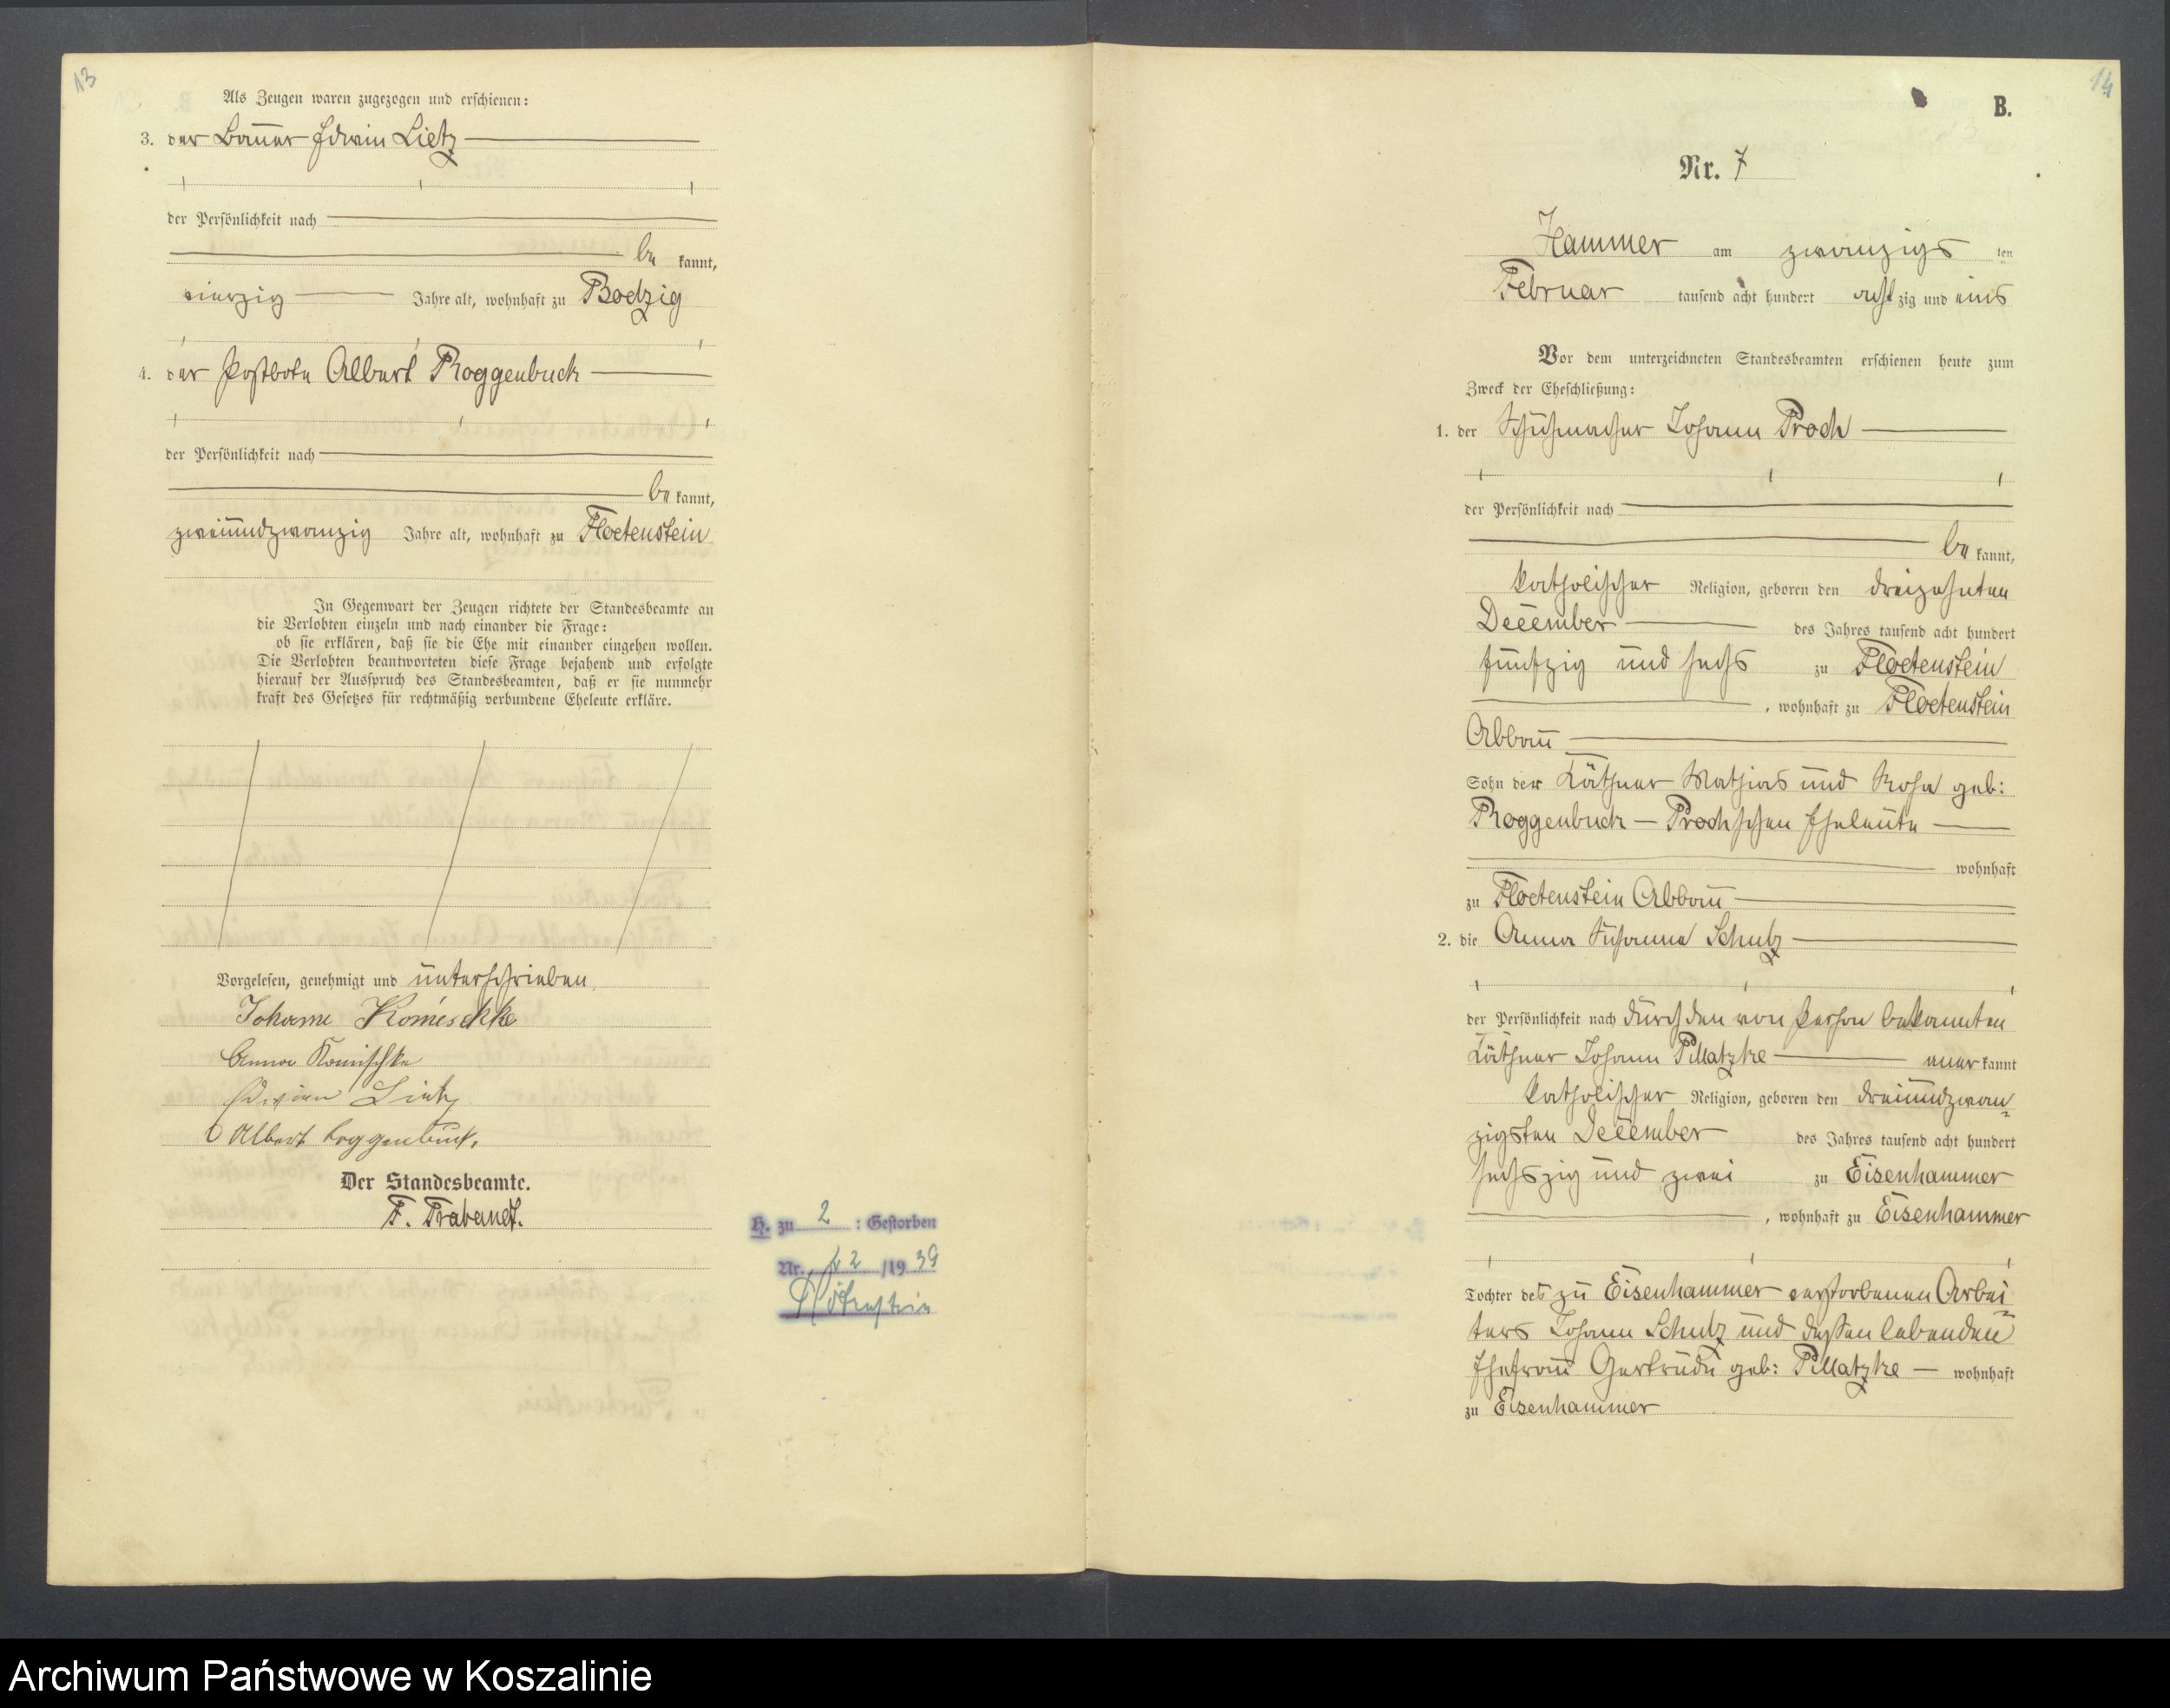 13
Als Zeugen waren zugezogen und erschienen:
3. der Bauer Edwin Lietz
der Persönlichkeit nach
be kannt,
vierzig Jahre alt, wohnhaft zu Bodzig
4. der Postbote Albert Roggenbuck
der Persönlichkeit nach
be kannt,
zweiundzwanzig Jahre alt, wohnhaft zu Floetenstein
In Gegenwart der Zeugen richtete der Standesbeamte an
die Verlobten einzeln und nach einander die Frage:
ob sie erklären, daß sie die Ehe mit einander eingehen wollen.
Die Verlobten beantworteten diese Frage bejahend und erfolgte
hierauf der Ausspruch des Standesbeamten, daß er sie nunmehr
kraft des Gesetzes für rechtmäßig verbundene Eheleute erkläre.
Vorgelesen, genehmigt und unterschrieben
Johann
Anna Komischke
Edwien Lietz
Albert Roggenbuck.
Der Standesbeamte.
F. Trabandt.
H. zu 2 : Gestorben
Nr. 2 /19 39
Flötenstein
14
B.
Nr. 7
Hammer am zwanzigs ten
Februar tausend acht hundert acht zig und eins
Vor dem unterzeichneten Standesbeamten erschienen heute zum
Zweck der Eheschließung:
1. der Schuhmacher Johann Proch
der Persönlichkeit nach
be kannt,
katholischer Religion, geboren den dreizehnten
December des Jahres tausend acht hundert
fünfzig und sechs zu Floetenstein
, wohnhaft zu Floetenstein
Abbau
Sohn der Käthner Mathias und Rosa geb:
Roggenbuck – Proch'schen Eheleute
wohnhaft
zu Floetenstein Abbau
2. die Anna Susanna Schulz
der Persönlichkeit nach durch den von Person bekannten
Käthner Johann Pillatzke aner kannt
katholischer Religion, geboren den dreiundzwan
zigsten December des Jahres tausend acht hundert
sechszig und zwei zu Eisenhammer
, wohnhaft zu Eisenhammer
Tochter des zu Eisenhammer verstorbenen Arbei
ters Johann Schulz und dessen lebenden
Ehefrau Gertrude geb: Pillatzke – wohnhaft
zu Eisenhammer
Archiwum Państwowe w Koszalinie